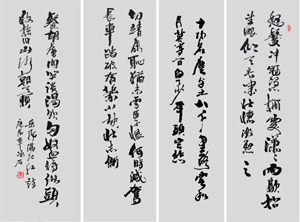 怒髮衝冠憑闌處瀟瀟雨歇抬
望眼仰天長嘯壯懷激烈三
十功名塵與土八千里路雲和
月莫等閑白了少年頭空悲
切靖康恥猶未雪臣子恨何時滅駕
長車踏破賀蘭山缺壯志飢
餐胡虜肉笑談渴飲匈奴血待從頭
收拾舊山河朝天闕
岳飛滿江紅詩